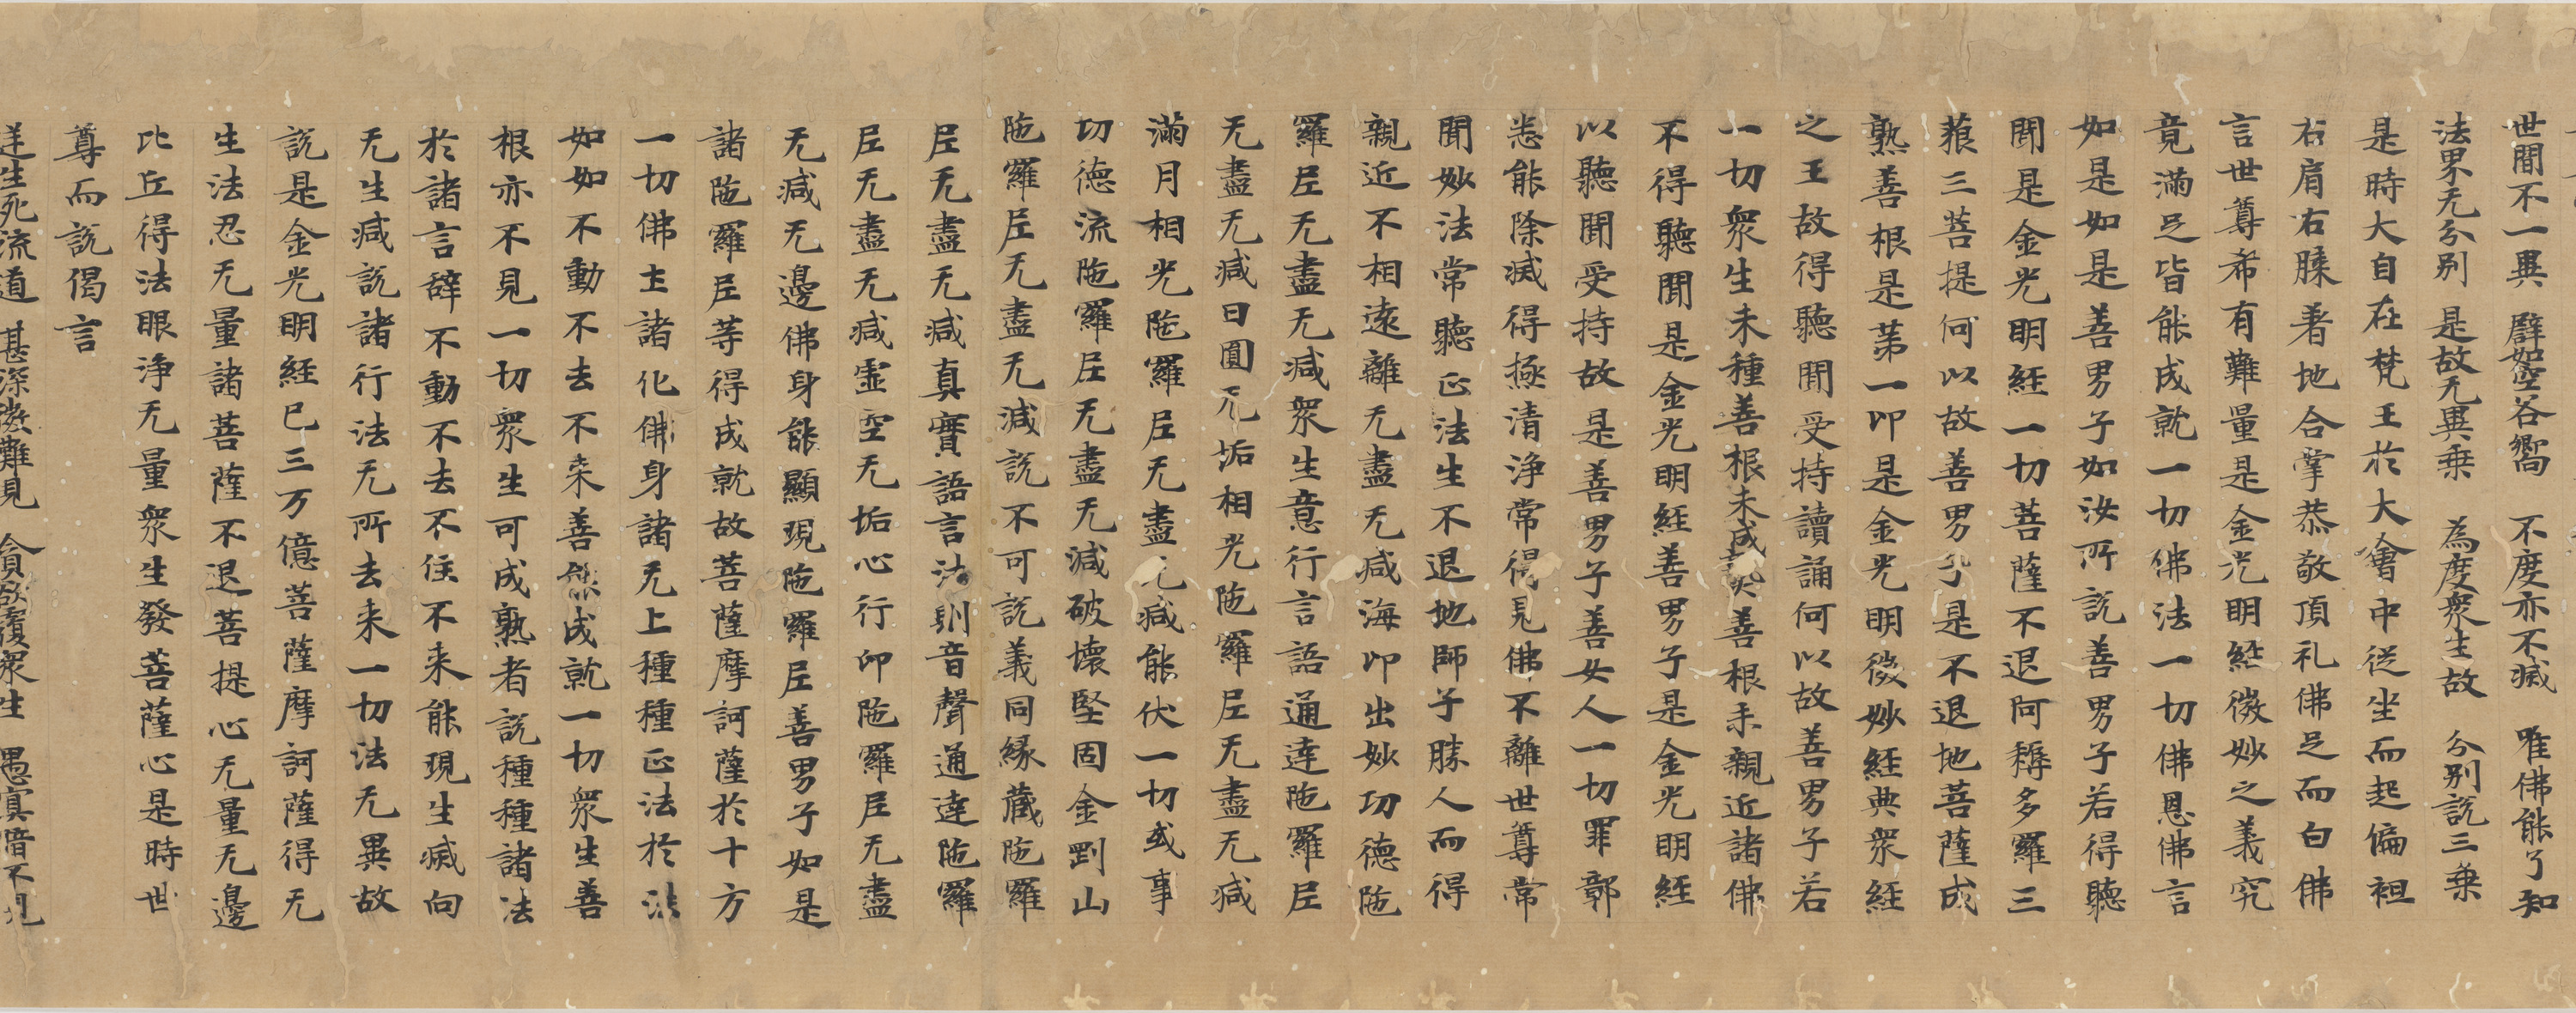 世間不一異 譬如空谷嚮 不度亦不滅 唯佛能了知
法界无分別 是故无異乗 為度衆生故 分別說三乗
是時大自在梵王於大會中從坐而起偏袒
右肩右膝著地合掌恭敬頂礼佛足而白佛
言世尊希有難量是金光明經微妙之義究
竟滿足皆能成就一切佛法一切佛恩佛言
如是如是善男子如汝所說善男子若得聽
聞是金光明經一切菩薩不退阿耨多羅三
藐三菩提何以故善男子是不退地菩薩成
熟善根是苐一印是金光明微妙經典衆經
之王故得聽聞受持讀誦何以故善男子若
一切衆生未種善根未成熟善根未親近諸佛
不得聽聞是金光明經善男子是金光明經
以聽聞受持故是善男子善女人一切罪鄣
悉能除滅得極清淨常得見佛不離世尊常
聞妙法常聽正法生不退地師子勝人而得
親近不相遠離无盡无減海印出妙功德陁
羅尼无盡无減衆生意行言語通達陁羅尼
无盡无減日圓无垢相光陁羅尼无盡无減
滿月相光陁羅尼无盡无減能伏一切或事
功德流陁羅尼无盡无減破壊堅固金剛山
陁羅尼无盡无減說不可說義同縁蔵陁羅
尼无盡无減真實語言法則音聲通達陁羅
尼无盡无減虛空无垢心行印陁羅尼无盡
无減无邊佛身能顯現陁羅尼善男子如是
諸陁羅尼等得成就故菩薩摩訶薩於十方
一切佛土諸化佛身諸无上種種正法於法
如如不動不去不来善能成就一切衆生善
根亦不見一切衆生可成熟者說種種諸法
於諸言辭不動不去不住不来能現生滅向
无生滅說諸行法无所去来一切法无異故
說是金光明經已三万億菩薩摩訶薩得无
生法忍无量諸菩薩不退菩提心无量无邊
比丘得法眼淨无量衆生發菩薩心是時世
尊而說偈言
逆生死流道 甚深微難見 貪欲覆衆生 愚冥暗不見